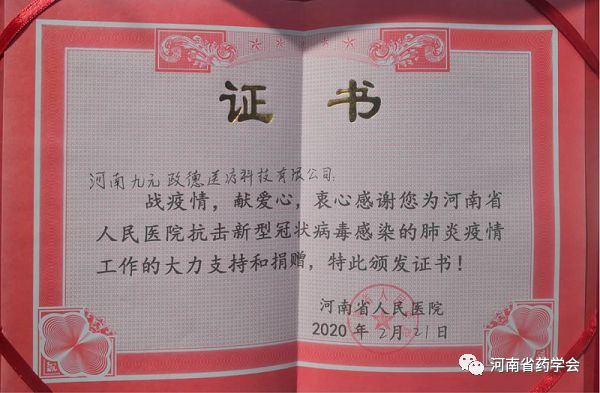 证 书
河南九元政德医疗科技有限公司:
战疫情，献爱心，衷心感谢您为河南省
人民医院抗击新型冠状病毒感染的肺炎疫情
工作的大力支持和捐赠，特此颁发证书！
河南省人民医院
2020 年 2月 21日
河南省药学会